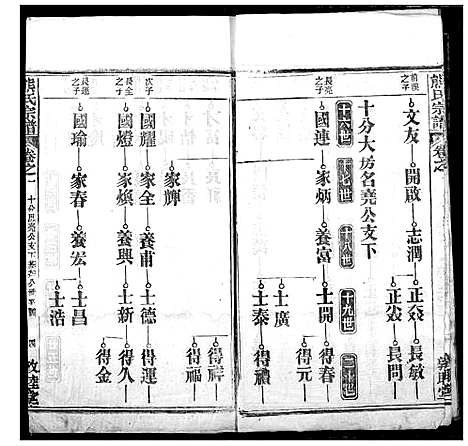 熊氏宗譜
卷之一
前溪之子
文友
開啟
志潤
正焱
長敏
正炎
長問
十分大房名堯公支下
十六世
十七世
十八世
十九世
二十世
長亮之子
國連
家炳
養富
士開
得春
得元
士廣
士泰
得禮
次子
國耀
家輝
家全
養甫
士德
得運
得祥
得福
長全之子
國燈
家煥
養興
士新
得久
得金
長運之子
國瑜
家春
養宏
士昌
士浩
熊氏宗譜
卷之一
十分
堯公支下
四
敦睦堂